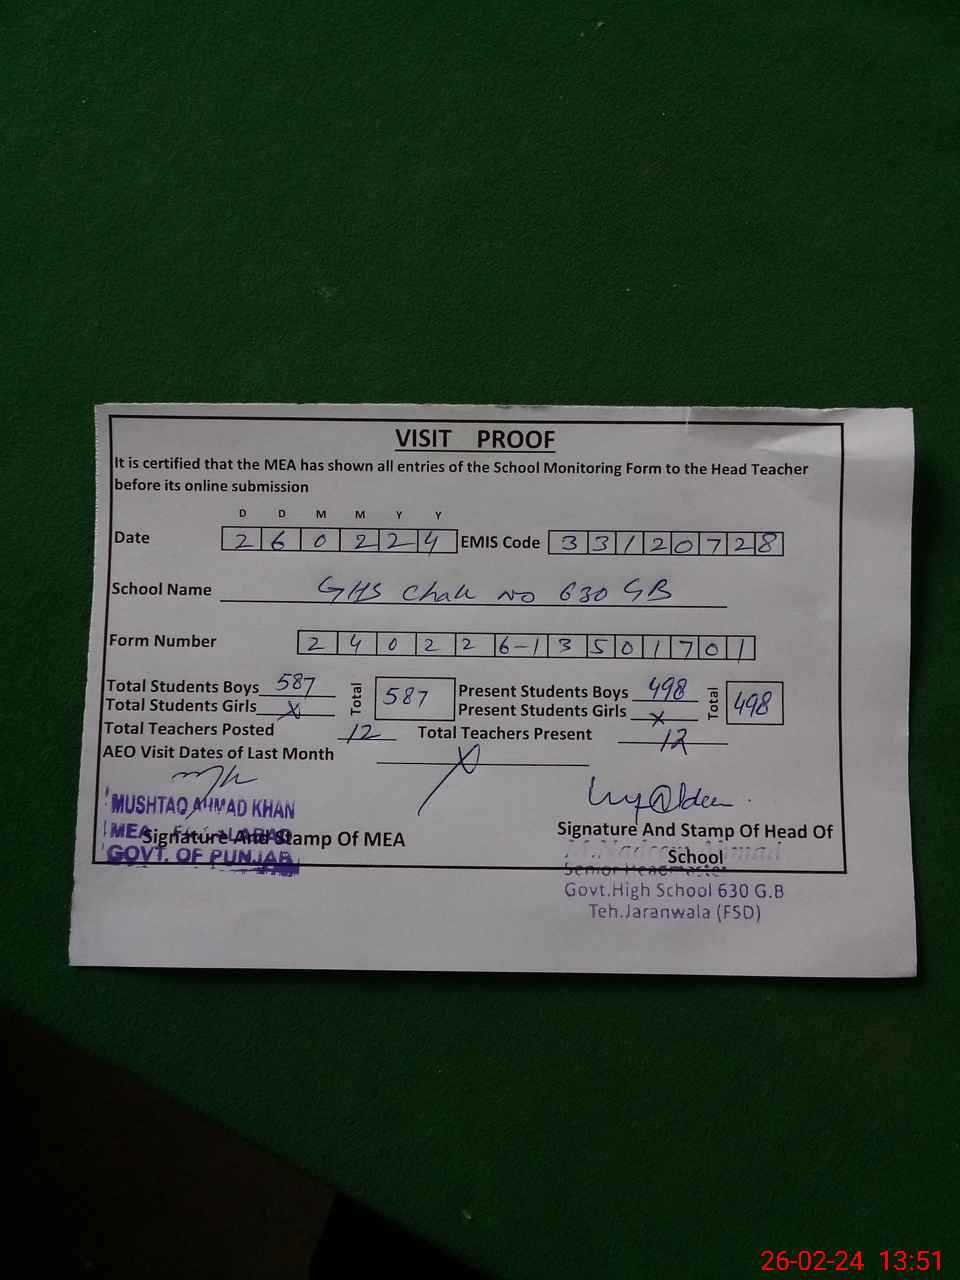 VISIT PROOF
It is certified that the MEA has shown all entries of the School Monitoring Form to the Head Teacher
before its online submission
D D M M Y Y
Date 2 6 0 2 2 4 EMIS Code 3 3 1 2 0 7 2 8
School Name GHS Chak No 630 GB
Form Number 2 4 0 2 2 6-1 3 5 0 1 7 0 1
Total Students Boys 587 Total 587 Present Students Boys 498 Total 498
Total Students Girls X Present Students Girls X
Total Teachers Posted 12 Total Teachers Present 12
AEO Visit Dates of Last Month X
MUSHTAQ AHMAD KHAN
MEA
Signature And Stamp Of MEA
GOVT. OF PUNJAB
Signature And Stamp Of Head Of
School
M.Nadeem Ahmad
Senior Headmaster
Govt.High School 630 G.B
Teh.Jaranwala (FSD)
26-02-24 13:51